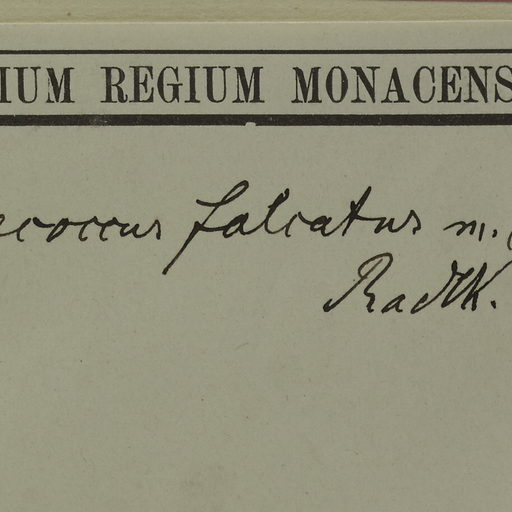 IUM REGIUM MONACENS
ecoccus falcatus m.
Radlk.